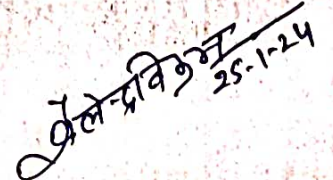 शैलेन्द्रविक्रम
25-1-24